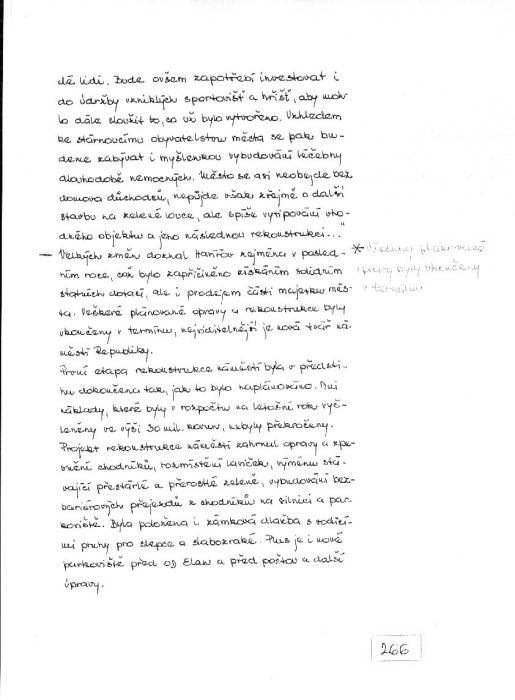 dé lidi. Bude ovšem zapotřebí investovat i
do údržby vzniklých sportovišť a hřišť, aby moh-
lo dále sloužit to, co už bylo vytvořeno. Vzhledem
ke stárnoucímu obyvatelstvu města se pak bu-
deme zabývat i myšlenkou vybudování léčebny
dlouhodobě nemocných. Město se asi neobejde bez
domova důchodců, nepůjde však zřejmě o další
stavbu na zelené louce, ale spíše vytipování vho-
dného objektu a jeho následnou rekonstrukci..."
— Velkých změn doznal Hanřov zejména v posled-
ním roce, což bylo zapříčiněno získáním solidním
statních dotací, ale i prodejem části majetku měs-
ta. Veškeré plánované opravy a rekonstrukce byly
ukončeny v termínu, nejviditelnější je nová tvář ná-
městí Republiky.
První etapa rekonstrukce náměstí byla v předsti-
hu dokončena tak, jak to bylo naplánováno. Ani
náklady, které byly v rozpočtu na letošní rok vyč-
leněny ve výši 30 mil. korun, nebyly překročeny.
Projekt rekonstrukce náměstí zahrnul opravy a zpe-
vnění chodníků, rozmístění laviček, výměnu stá-
vající přestárlé a přerostlé zeleně, vybudování bez-
bariérových přejezdů z chodníků na silnici a par-
koviště. Byla položena i zámková dlažba s vodící-
mi pruhy pro slepce a slabozraké. Plus je i nové
parkoviště před OD Elan a před poštou a další
úpravy.
* Všechny plánované
opravy byly ukončeny
v termínu
266